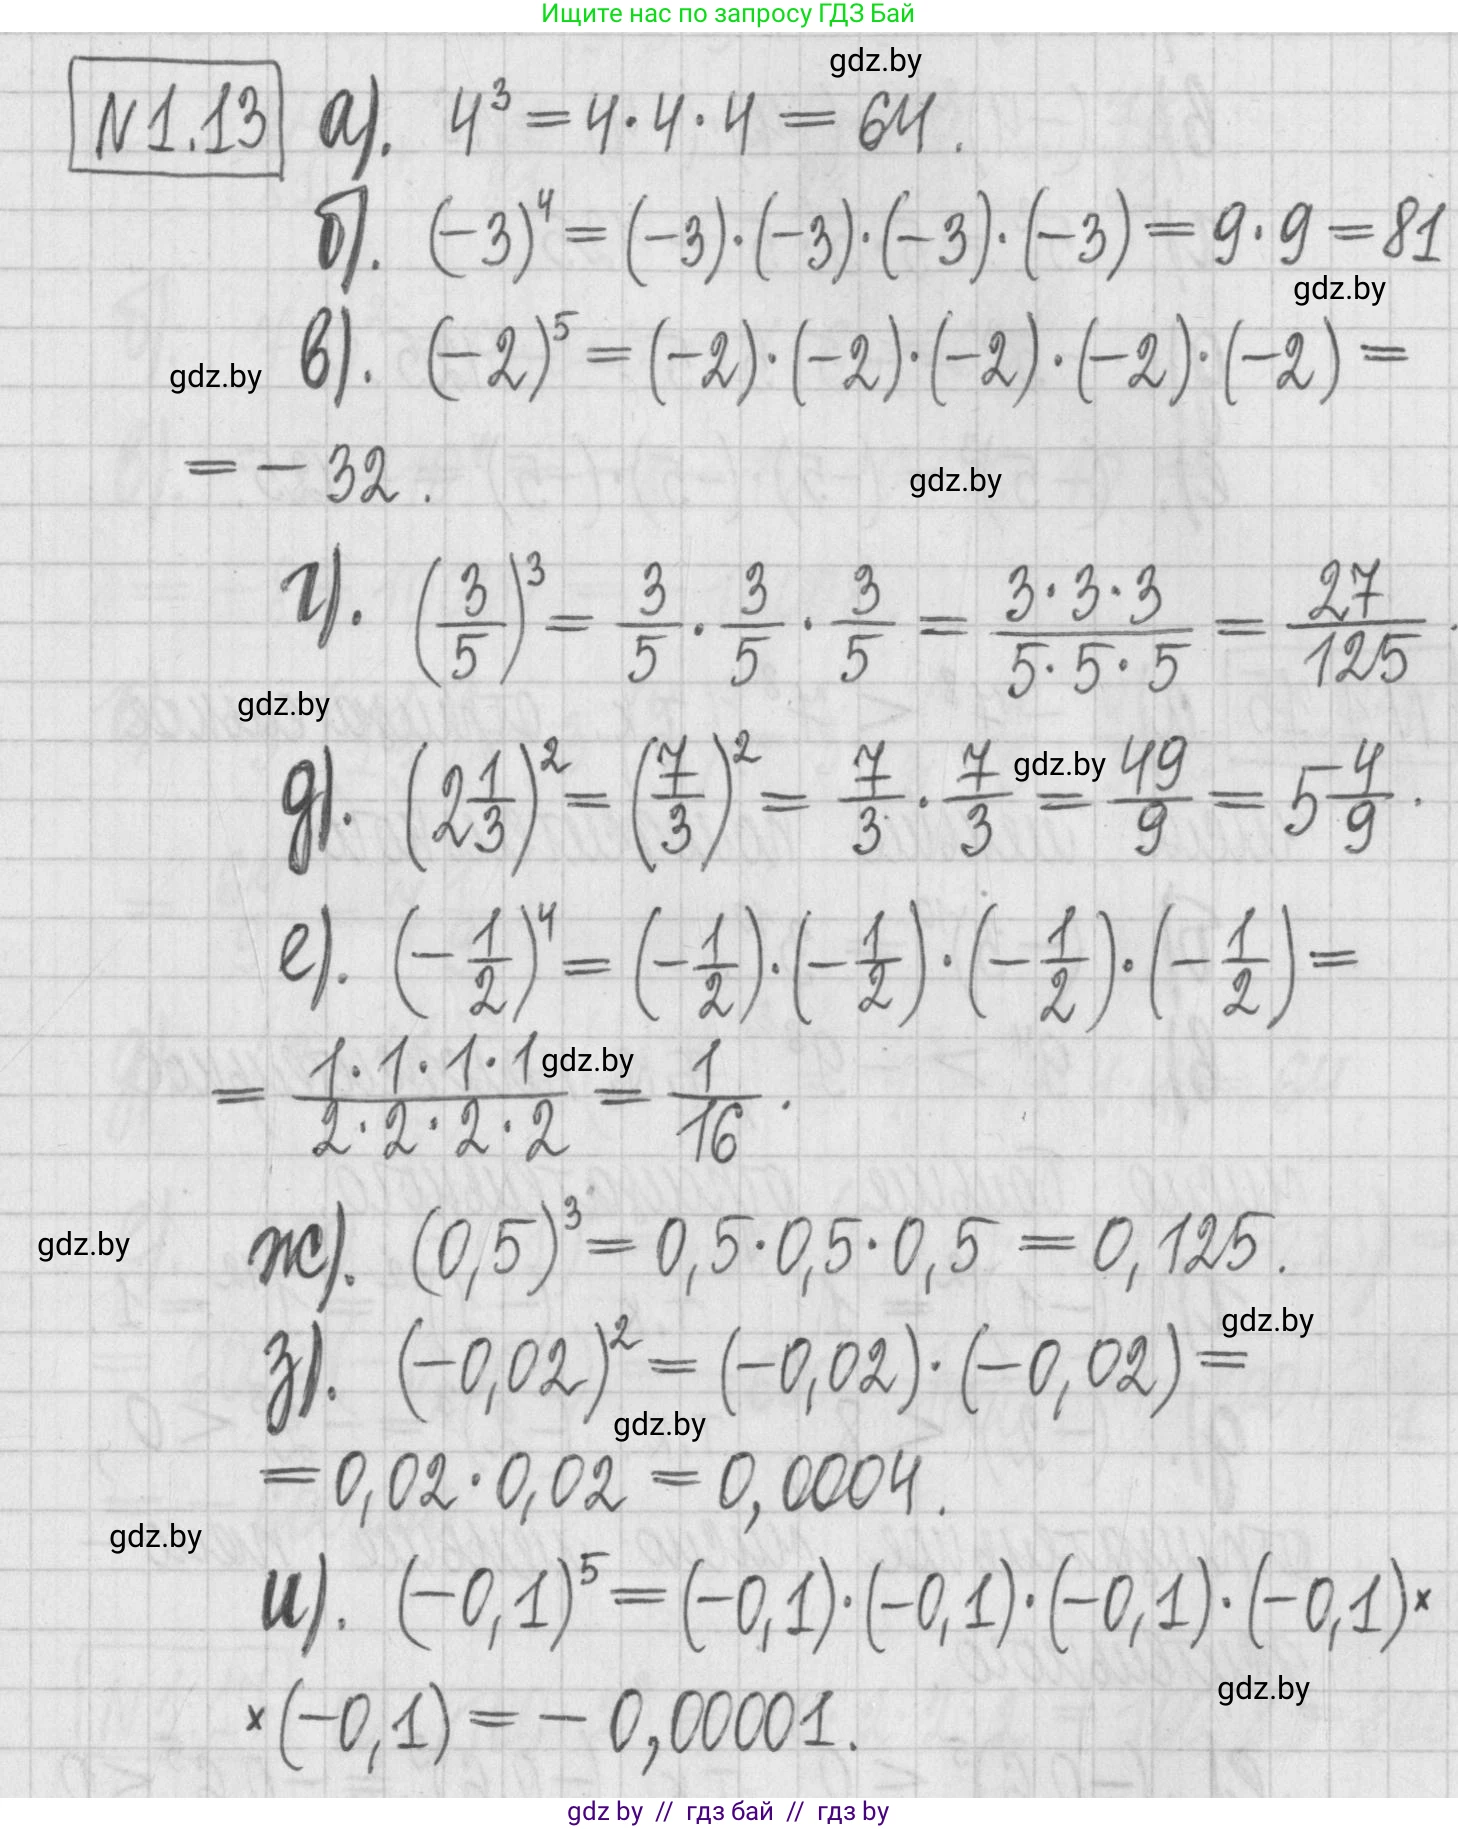 Ищите нас по запросу ГДЗ Бай
gdz.by
N1.13 а). 4³ = 4·4·4 = 64.
б). (−3)⁴ = (−3)·(−3)·(−3)·(−3) = 9·9 = 81
gdz.by
в). (−2)⁵ = (−2)·(−2)·(−2)·(−2)·(−2) =
gdz.by
= − 32.
gdz.by
г). (3/5)³ = 3/5 · 3/5 · 3/5 = 3·3·3/5·5·5 = 27/125.
gdz.by
д). (2 1/3)² = (7/3)² = 7/3 · 7/3 = 49/9 = 5 4/9.
gdz.by
е). (−1/2)⁴ = (−1/2)·(−1/2)·(−1/2)·(−1/2) =
= 1·1·1·1/2·2·2·2 = 1/16.
gdz.by
ж). (0,5)³ = 0,5·0,5·0,5 = 0,125.
gdz.by
gdz.by
з). (−0,02)² = (−0,02)·(−0,02) =
gdz.by
= 0,02·0,02 = 0,0004.
gdz.by
и). (−0,1)⁵ = (−0,1)·(−0,1)·(−0,1)·(−0,1)×
gdz.by
×(−0,1) = − 0,00001.
gdz by // гдз бай // гдз by